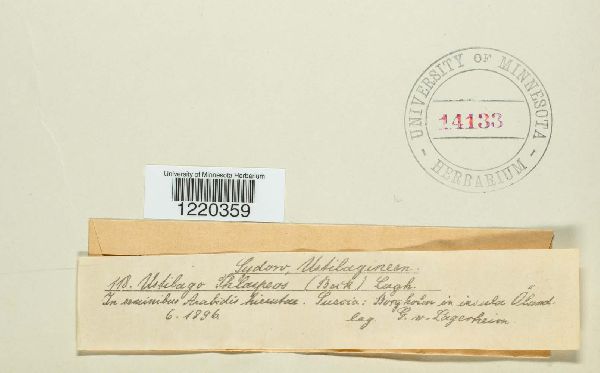 UNIVERSITY OF MINNESOTA
14133
- HERBARIUM -
University of Minnesota Herbarium
1220359
Sydow, Ustilagineen.
118. Ustilago Thlaspeos (Beck) Lagh.
In seminibus Arabidis hirsutae. Suecia: Borgholm in insula Öland.
6. 1896. leg. G. v. Lagerheim.